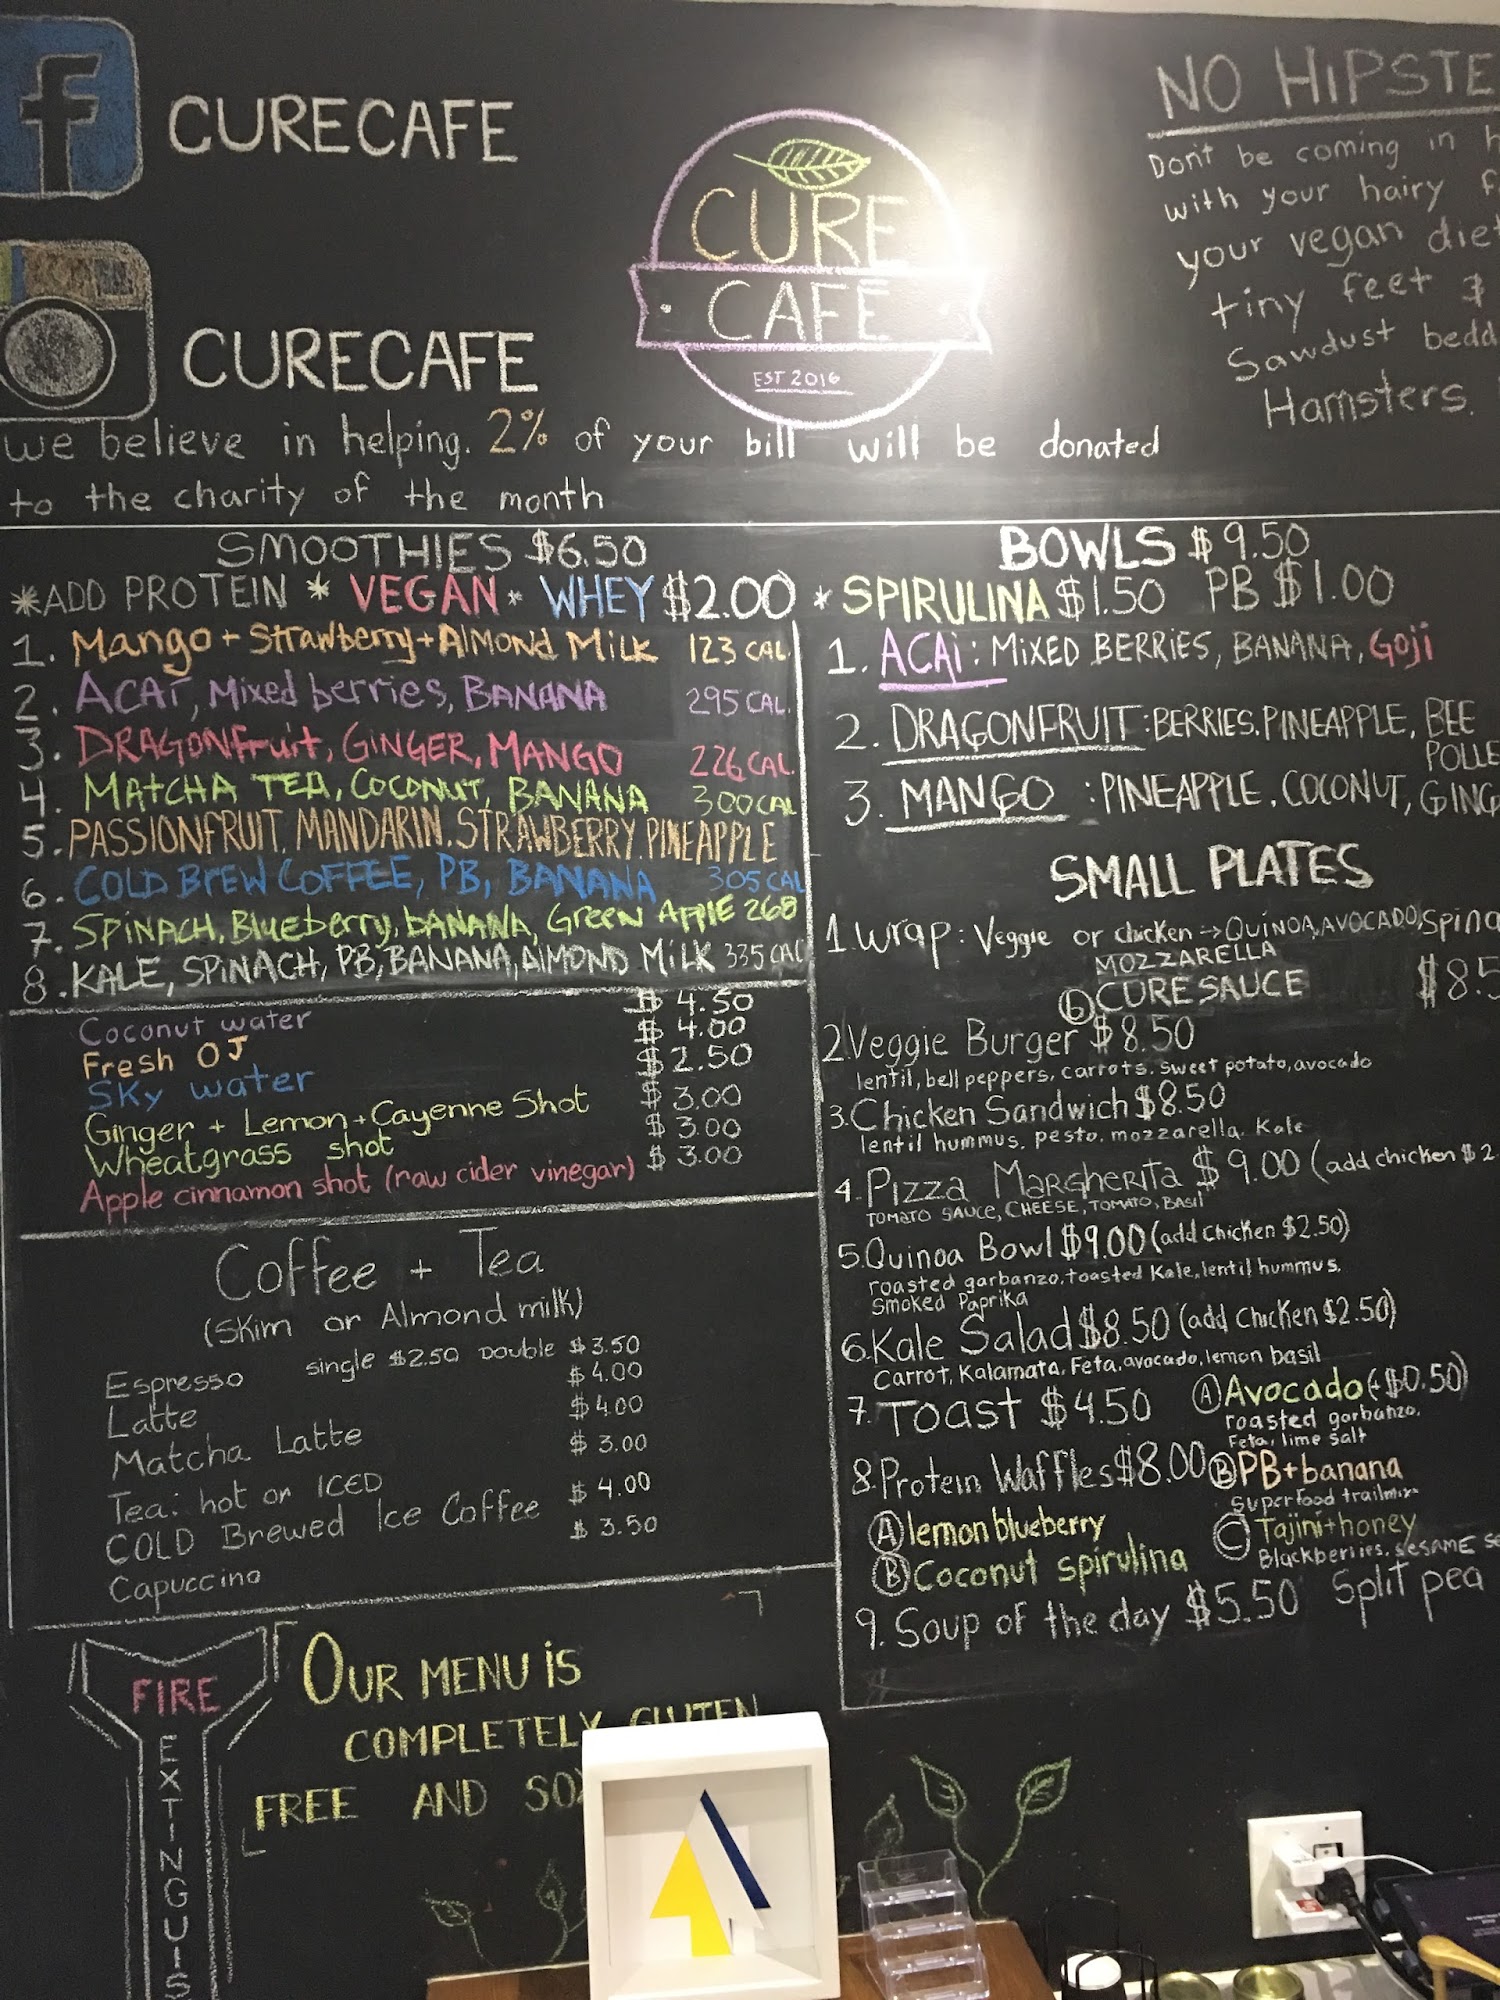 f CURECAFE
CURECAFE
CURE
CAFE
EST 2016
NO HIPSTE
Don't be coming in h
with your hairy f
your vegan diet
tiny feet &
Sawdust bedd
Hamsters.
we believe in helping. 2% of your bill will be donated
to the charity of the month
SMOOTHIES $6.50
*ADD PROTEIN * VEGAN * WHEY $2.00
1. Mango + Strawberry + Almond Milk 123 CAL.
2. ACAi, Mixed berries, BANANA 295 CAL.
3. DRAGONfruit, GINGER, MANGO 226 CAL.
4. MATCHA TEA, COCONUT, BANANA 300 CAL
5. PASSIONFRUIT, MANDARIN, STRAWBERRY, PINEAPPLE
6. COLD BREW COFFEE, PB, BANANA 305 CAL
7. SPINACH, Blueberry, BANANA, Green Apple 268
8. KALE, SPINACH, PB, BANANA, Almond Milk 335 CAL
Coconut water $4.50
Fresh OJ $4.00
Sky water $2.50
Ginger + Lemon + Cayenne Shot $3.00
Wheatgrass shot $3.00
Apple cinnamon shot (raw cider vinegar) $3.00
Coffee + Tea
(Skim or Almond milk)
Espresso single $2.50 Double $3.50
Latte $4.00
Matcha Latte $4.00
Tea: hot or ICED $3.00
COLD Brewed Ice Coffee $4.00
Capuccino $3.50
BOWLS $9.50
* SPIRULINA $1.50 PB $1.00
1. ACAi: MiXED BERRIES, BANANA, Goji
2. DRAGONFRUIT: BERRIES. PINEAPPLE, BEE
POLLE
3. MANGO : PINEAPPLE, COCONUT, GING
SMALL PLATES
1 wrap: Veggie or chicken → QUINOA, AVOCADO, Spina
MOZZARELLA
CURE SAUCE $8.5
2. Veggie Burger $8.50
lentil, bell peppers, carrots. sweet potato, avocado
3. Chicken Sandwich $8.50
lentil hummus, pesto, mozzarella. Kale
4. Pizza Margherita $9.00 (add chicken $2
TOMATO SAUCE, CHEESE, TOMATO, BASIL
5. Quinoa Bowl $9.00 (add chicken $2.50)
roasted garbanzo, toasted Kale, lentil hummus,
Smoked Paprika
6. Kale Salad $8.50 (add chicken $2.50)
Carrot, Kalamata, Feta, avocado, lemon basil
7. Toast $4.50 A Avocado (+$0.50)
roasted garbanzo,
Feta, lime salt
8. Protein Waffles $8.00 B PB+banana
Superfood trailmix
A lemon blueberry C Tajini+honey
Blackberries, SESAME Se
B Coconut spirulina
9. Soup of the day $5.50 Split pea
OUR MENU iS
COMPLETELY GLUTEN
FREE AND SO
FIRE
EXTINGUIS